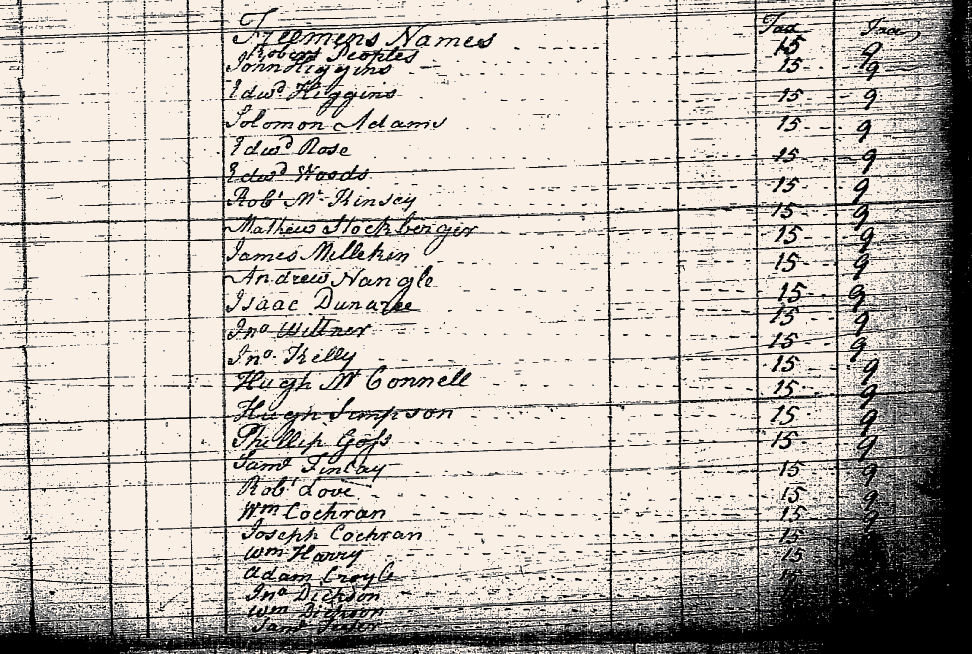 Freemens Names Tax Tax
Robert Peoples 15 9
John Higgins 15 9
Edwd Higgins 15 9
Solomon Adams 15 9
Edwd Rose 15 9
Edwd Woods 15 9
Robt Mc Kinsey 15 9
Mathew Stockberger 15 9
James Millekin 15 9
Andrew Nangle 15 9
Isaac 15 9
Jno Wittner 15 9
Jno Kelly 15 9
Hugh Mc Connell 15 9
Hugh Simpson 15 9
Phillip Goss 15 9
Saml Finlay 15 9
Robt Love 15 9
Wm Cochran 15 9
Joseph Cochran 15
Wm Harry 15
Adam Croyle
Jno Dickson
Wm Dickson
Saml